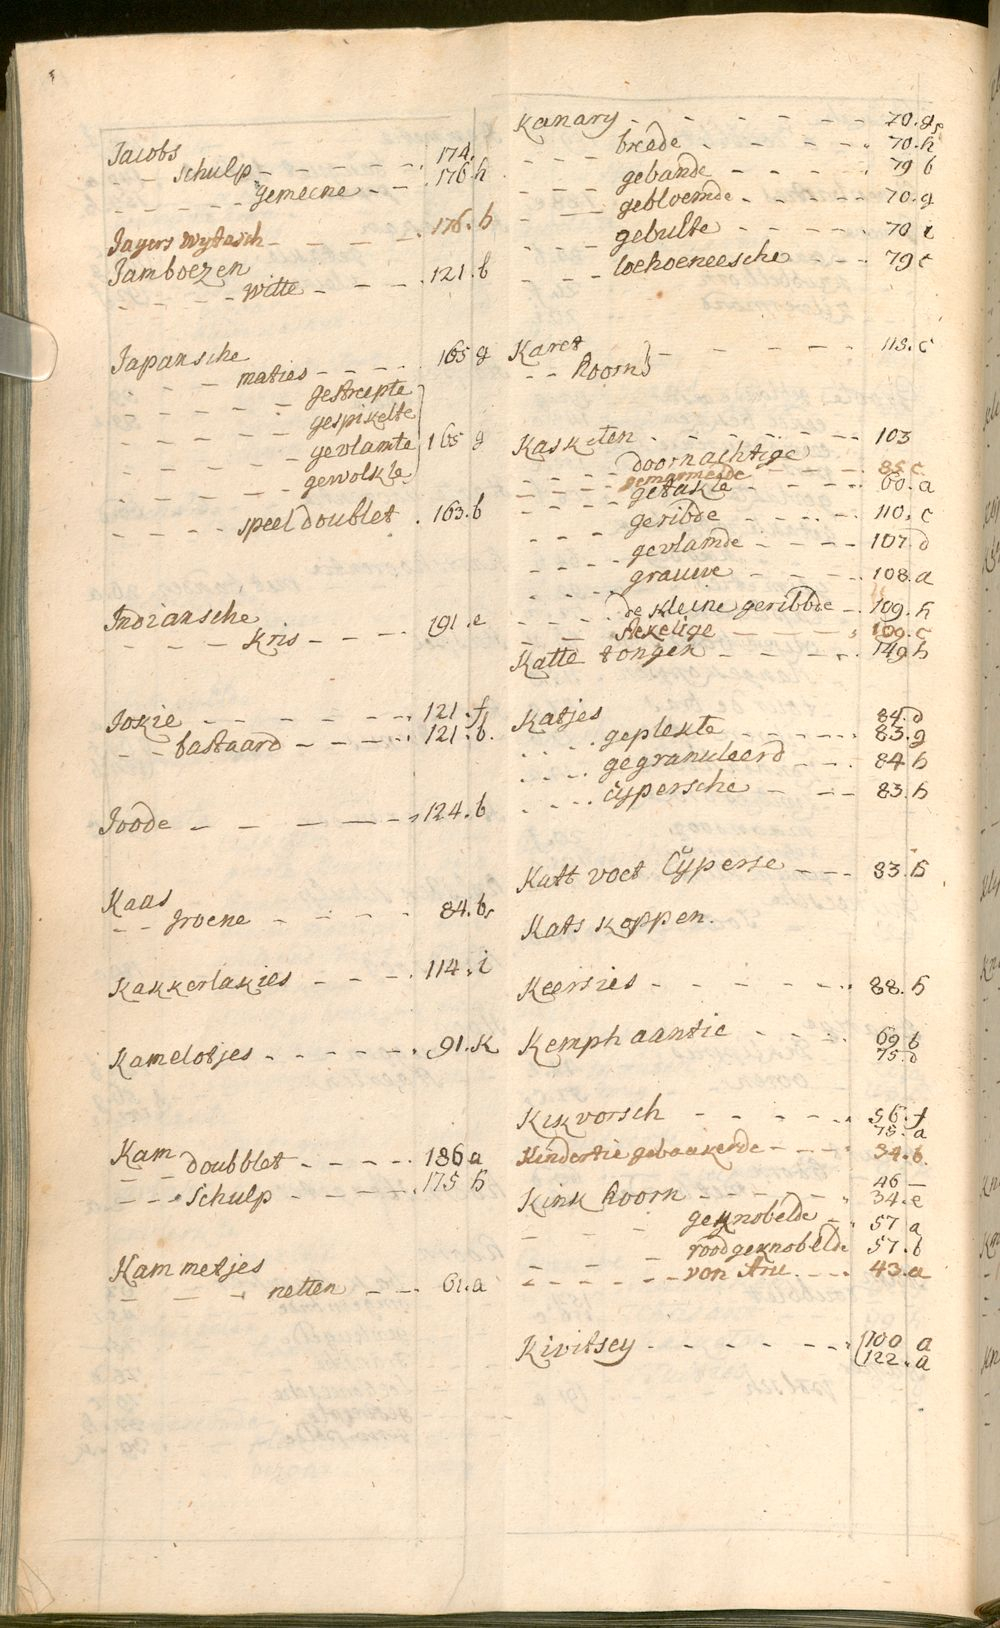 Jacobs
- - schulp - - - - - - 174.
- - - - - gemeene - - - 176.h
Jagers wytasch - - - - - 176.h
Jamboezen
- - - - witte - - - - 121.b
Japansche
- - - maties - - - - - 165 g
- - - - - gestreepte
- - - - - gespikelte
- - - - - gevlamte 165 g
- - - - - gewolkte
- - - - speel doublet . 163.b
Indiansche
- - - - kris - - - - 191.e
Jokie - - - - - - - 121.f
- - bastaard - - - - 121.b.
Joode - - - - - - 124.b
Kaas
- - groene - - - - - 84.b
Kakkerlakies - - - . 114.i
Kamelotjes - - - - - . 91.K
Kam
- - doubblet - - - - 186 a
- - - schulp - - - - - . 175 h
Kammetjes
- - - - netten - - - 61.a
Kanary - - - - - - - 70.g
- - - brede - - - - - - 70.h
- - - gebande - - - - - 79 b
- - - gebloemde - - - - - 70.g
- - - gebulte - - - - - 70 i
- - - loehoeneesche - - - 79 c
Karet
- - hoorn } - - - - - - 113.c
Kasketen - - - - - - - 103
- - - doornachtige
- - - gemarmerde - - - - 85 c
- - - getakte - - - - - 60.a
- - - geribde - - - - - 110.c
- - - gevlamde - - - - 107.d
- - - grauwe - - - - - 108.a
- - - de kleine geribbde - . 109.h
- - - stekelige - - - - 109.c
Katte tongen - - - - - 149 h
Katjes 84.d
- - - - geplekte - - - - - 83.g
- - - - gegranuleerd - - - 84 h
- - - - Cÿpersche - - - - 83.h
Katt voet Cÿperse - - - 83.h
Kats koppen.
Keersies - - - - - - - 88.h
Kemphaantie - - - - 69 b
75.d
Kikvorsch - - - - - . 56.f
75.a
Kindertie gebaakerde - - - - 34.b.
46 -
Kink hoorn - - - - - - 34.e
- - - geknobelde - . 57 a
- - - rood geknobelde 57.b
- - - - - - von Aru. - - - 43.a
Kivitsey - - - - - - 100 a
122.a